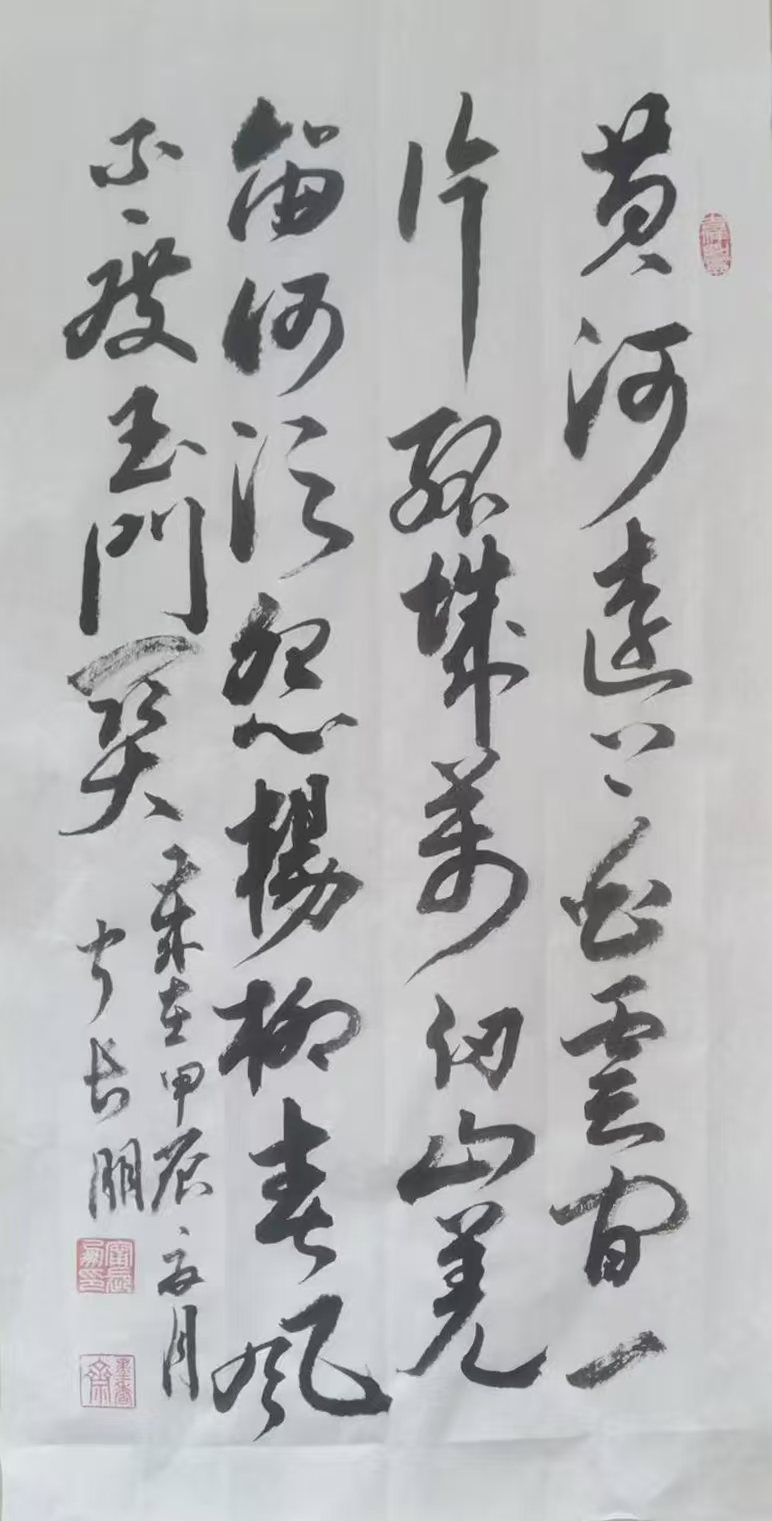 黄河遠上白雲間一
片孤城萬仞山羌
笛何須怨楊柳春風
不度玉門關
歲在甲辰月
長朋
墨香齋